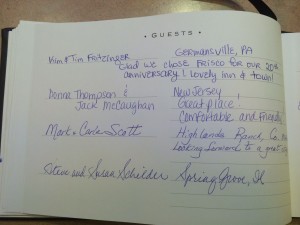 • GUESTS •
Kim & Tim GERMANSVILLE, PA
Glad we chose Frisco for our 20th
anniversary! Lovely inn & town!
Donna Thompson & New Jersey
Jack McCaughan Great place!
Comfortable and Friendly
Mark & Carla Scott Highlands Ranch, Co
Looking forward to a great
Steve and Susan Schilder Spring Grove, IL